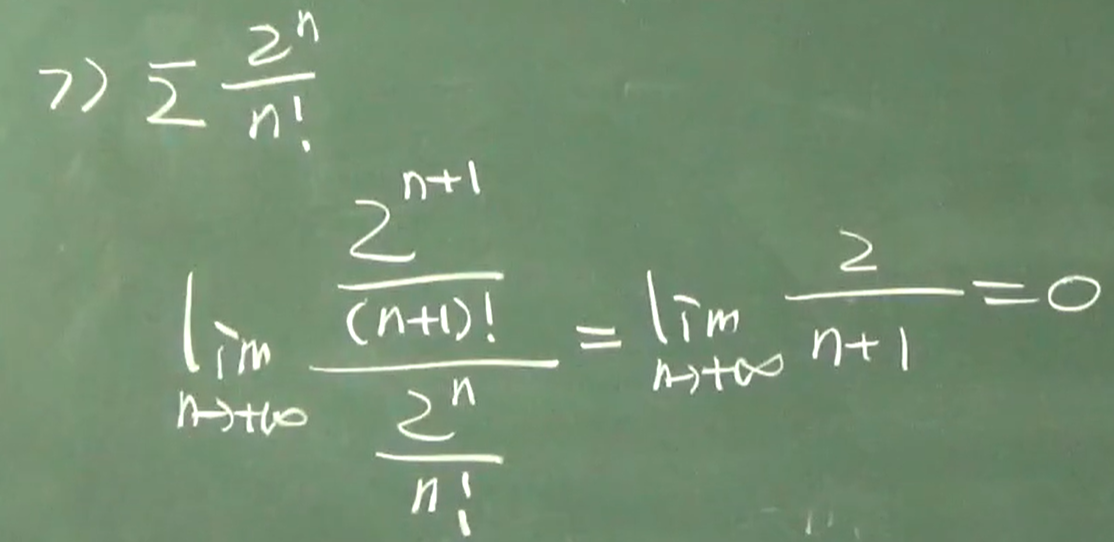 7) \sum \frac{2^n}{n!}
\lim_{n \to +\infty} \frac{\frac{2^{n+1}}{(n+1)!}}{\frac{2^n}{n!}} = \lim_{n \to +\infty} \frac{2}{n+1} = 0